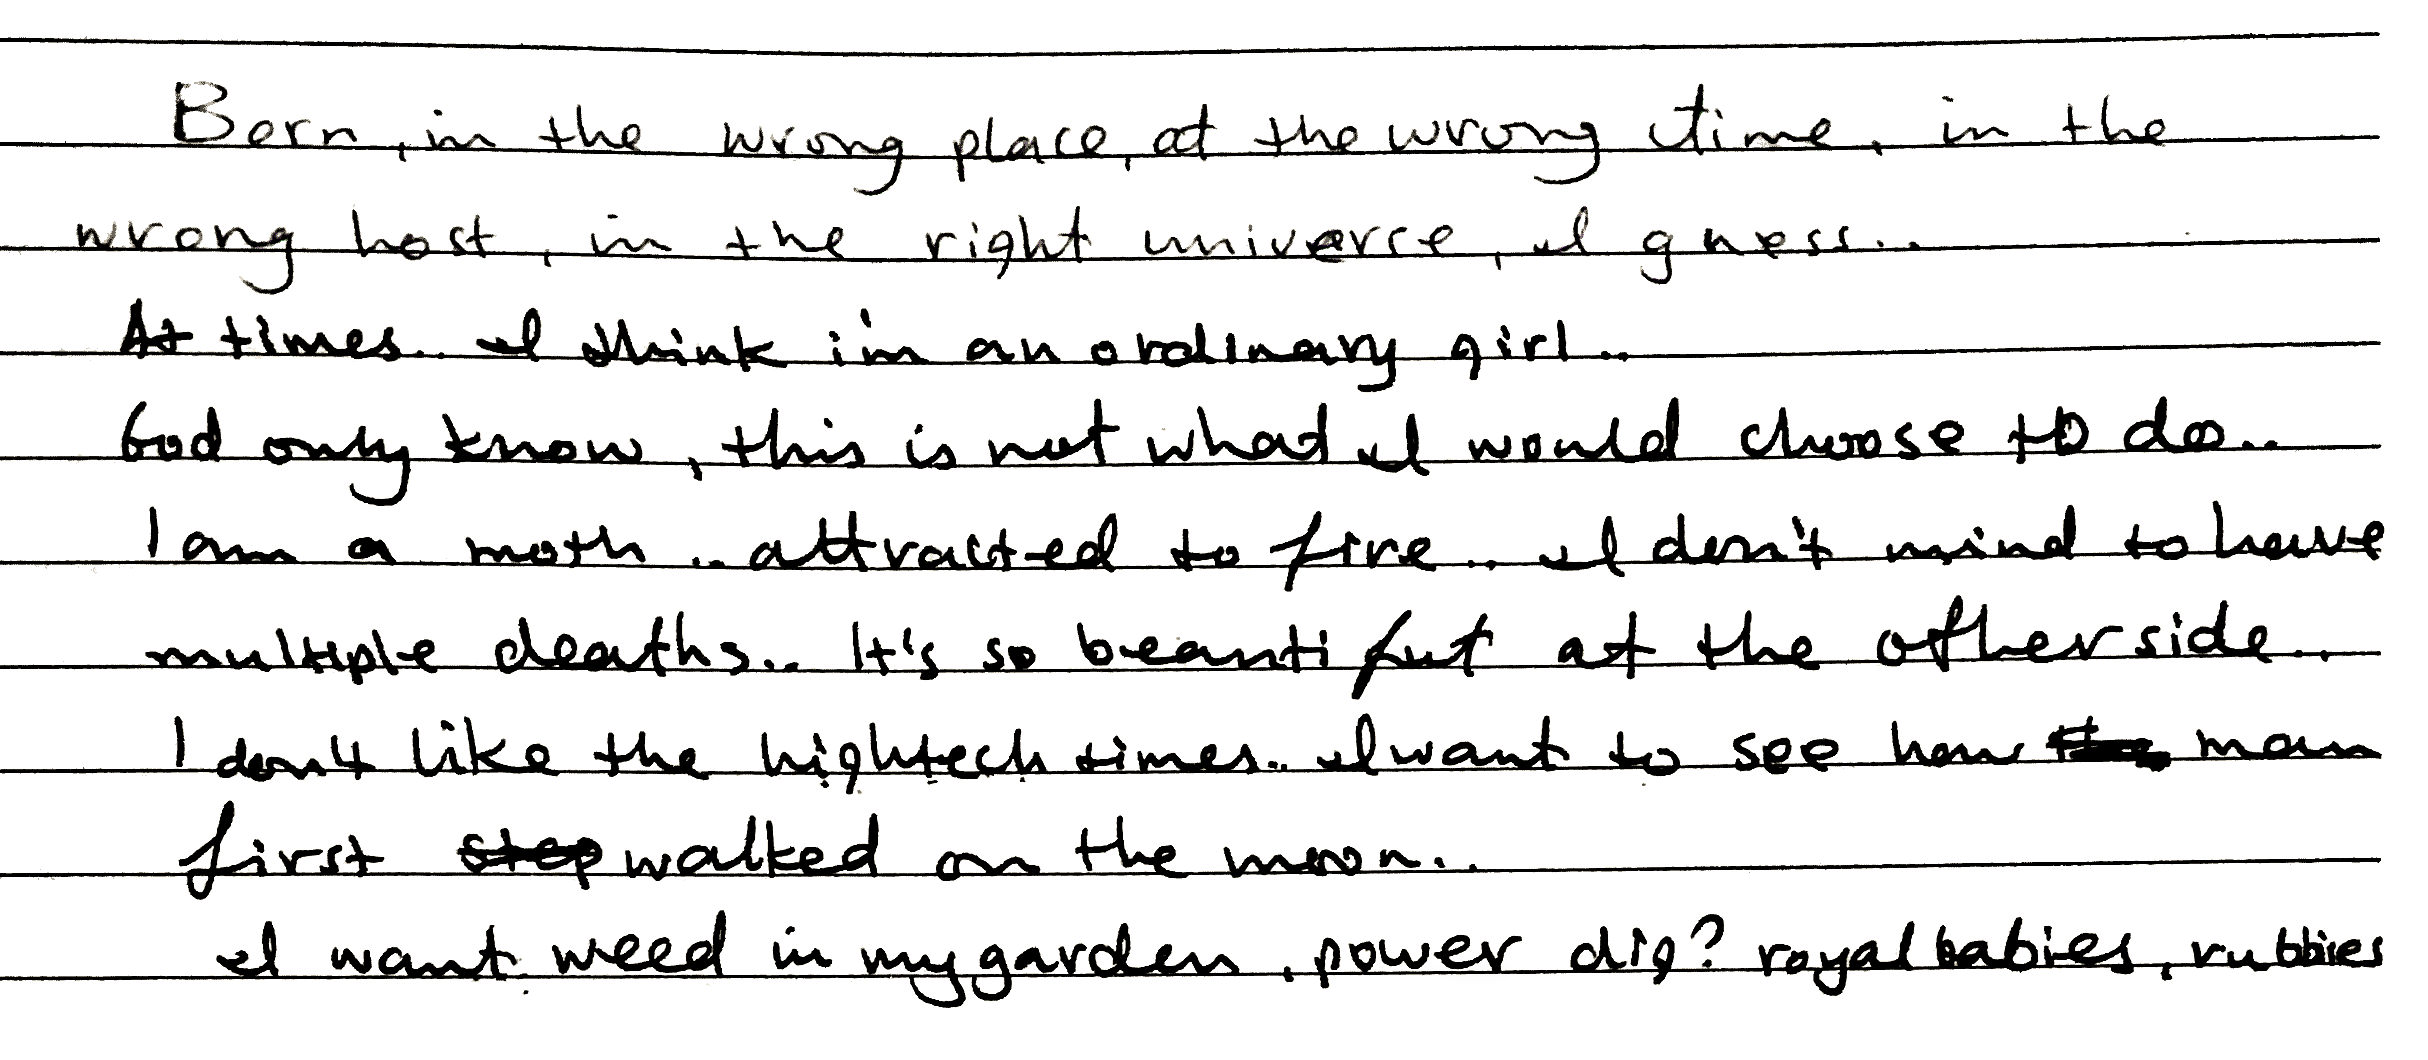 Born, in the wrong place, at the wrong time, in the
wrong host, in the right universe, I guess..
At times.. I think i'm an ordinary girl..
God only know, this is not what I would choose to do..
I am a moth.. attracted to fire.. I don't mind to have
multiple deaths.. It's so beautiful at the otherside..
I don't like the hightech times.. I want to see how the man
first step walked on the moon..
I want weed in my garden, power dig? royal babies, rubbies